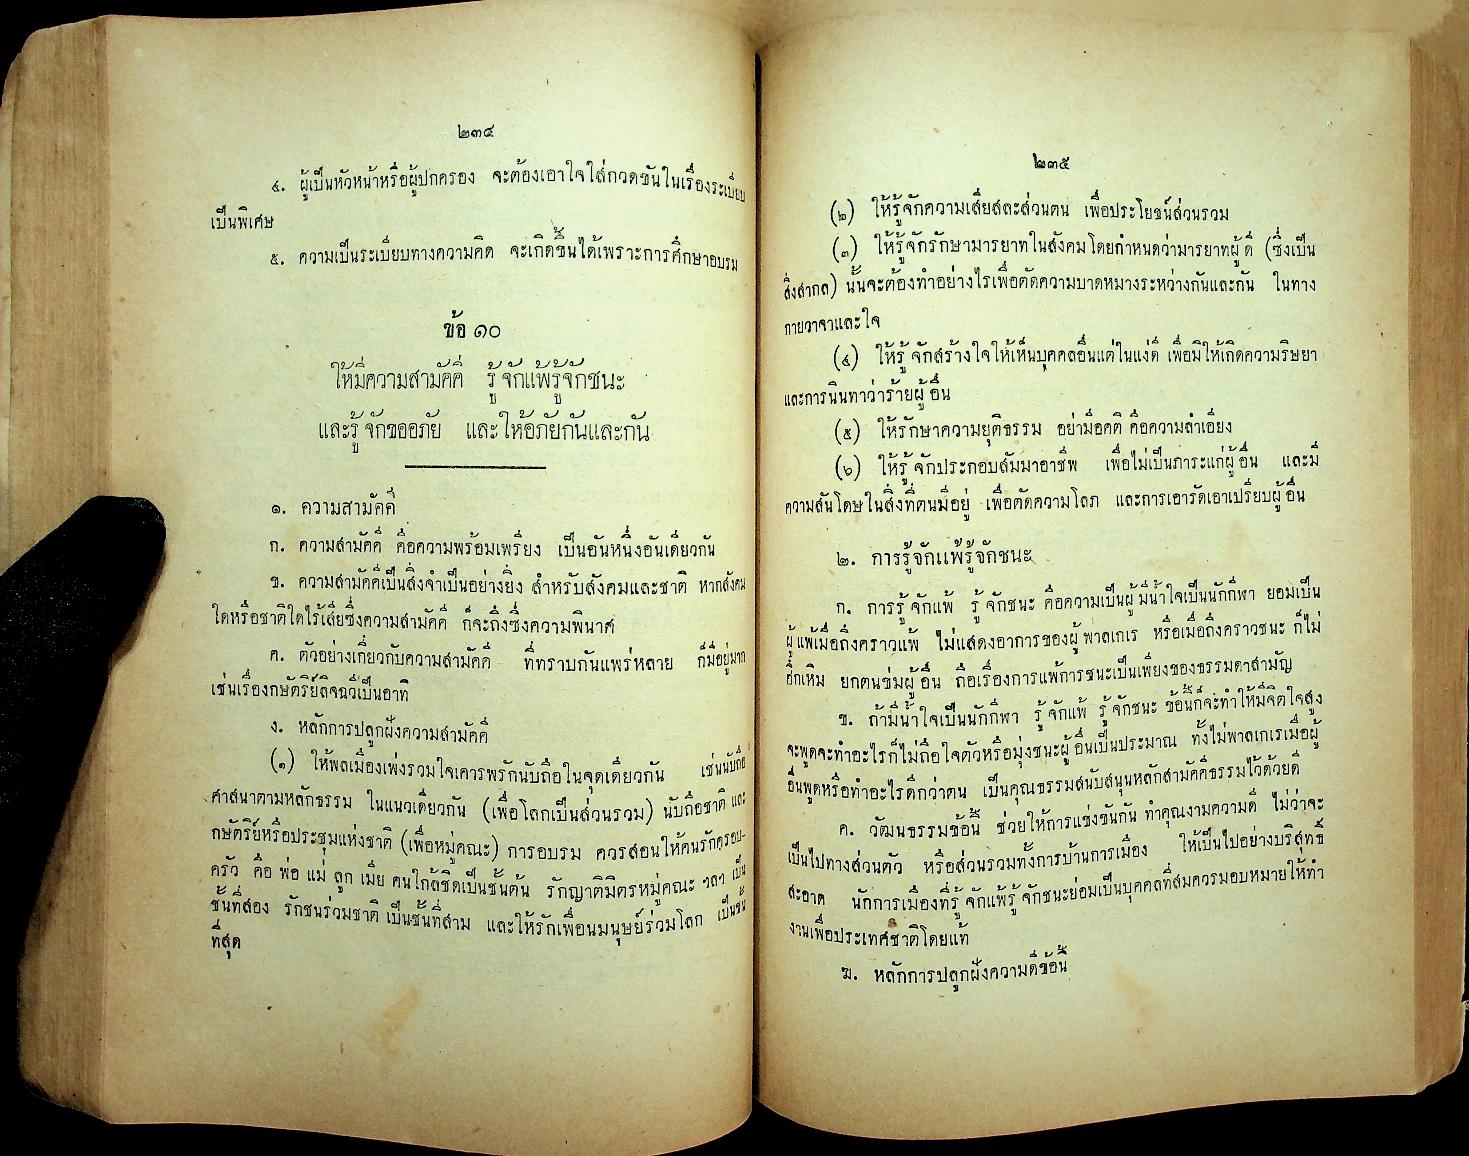 ๒๓๔
๔. ผู้เป็นหัวหน้าหรือผู้ปกครอง จะต้องเอาใจใส่กวดขันในเรื่องระเบียบ
เป็นพิเศษ
๕. ความเป็นระเบียบทางความคิด จะเกิดขึ้นได้เพราะการศึกษาอบรม
ข้อ ๑๐
ให้มีความสามัคคี รู้จักแพ้รู้จักชนะ
และรู้จักขออภัย และให้อภัยกันและกัน
๑. ความสามัคคี
ก. ความสามัคคี คือความพร้อมเพรียง เป็นอันหนึ่งอันเดียวกัน
ข. ความสามัคคีเป็นสิ่งจำเป็นอย่างยิ่ง สำหรับสังคมและชาติ หากสังคม
ใดหรือชาติใดไร้เสียซึ่งความสามัคคี ก็จะถึงซึ่งความพินาศ
ค. ตัวอย่างเกี่ยวกับความสามัคคี ที่ทราบกันแพร่หลาย ก็มีอยู่มาก
เช่นเรื่องกษัตริย์ลิจฉวีเป็นอาทิ
ง. หลักการปลูกฝังความสามัคคี
(๑) ให้พลเมืองเพ่งรวมใจเคารพรักนับถือในจุดเดียวกัน เช่นนับถือ
ศาสนาตามหลักธรรม ในแนวเดียวกัน (เพื่อโลกเป็นส่วนรวม) นับถือชาติ และ
กษัตริย์หรือประชุมแห่งชาติ (เพื่อหมู่คณะ) การอบรม ควรสอนให้คนรักครอบ-
ครัว คือ พ่อ แม่ ลูก เมีย คนใกล้ชิดเป็นชั้นต้น รักญาติมิตรหมู่คณะ ฯลฯ เป็น
ชั้นที่สอง รักชนร่วมชาติ เป็นชั้นที่สาม และให้รักเพื่อนมนุษย์ร่วมโลก เป็นชั้น
ที่สุด
๒๓๕
(๒) ให้รู้จักความเสียสละส่วนตน เพื่อประโยชน์ส่วนรวม
(๓) ให้รู้จักรักษามารยาทในสังคมโดยกำหนดว่ามารยาทผู้ดี (ซึ่งเป็น
สิ่งสากล) นั้นจะต้องทำอย่างไรเพื่อตัดความบาดหมางระหว่างกันและกัน ในทาง
กายวาจาและใจ
(๔) ให้รู้จักสร้างใจให้เห็นบุคคลอื่นแต่ในแง่ดี เพื่อมิให้เกิดความริษยา
และการนินทาว่าร้ายผู้อื่น
(๕) ให้รักษาความยุติธรรม อย่ามีอคติ คือความลำเอียง
(๖) ให้รู้จักประกอบสัมมาอาชีพ เพื่อไม่เป็นภาระแก่ผู้อื่น และมี
ความสันโดษในสิ่งที่ตนมีอยู่ เพื่อตัดความโลภ และการเอารัดเอาเปรียบผู้อื่น
๒. การรู้จักแพ้รู้จักชนะ
ก. การรู้จักแพ้ รู้จักชนะ คือความเป็นผู้มีน้ำใจเป็นนักกีฬา ยอมเป็น
ผู้แพ้เมื่อถึงคราวแพ้ ไม่แสดงอาการของผู้พาลเกเร หรือเมื่อถึงคราวชนะ ก็ไม่
ฮึกเหิม ยกตนข่มผู้อื่น ถือเรื่องการแพ้การชนะเป็นเพียงของธรรมดาสามัญ
ข. ถ้ามีน้ำใจเป็นนักกีฬา รู้จักแพ้ รู้จักชนะ ข้อนี้ก็จะทำให้มีจิตใจสูง
จะพูดจะทำอะไรก็ไม่ถือใจตัวหรือมุ่งชนะผู้อื่นเป็นประมาณ ทั้งไม่พาลเกเรเมื่อผู้
อื่นพูดหรือทำอะไรดีกว่าตน เป็นคุณธรรมสนับสนุนหลักสามัคคีธรรมไว้ด้วยดี
ค. วัฒนธรรมข้อนี้ ช่วยให้การแข่งขันกัน ทำคุณงามความดี ไม่ว่าจะ
เป็นไปทางส่วนตัว หรือส่วนรวมทั้งการบ้านการเมือง ให้เป็นไปอย่างบริสุทธิ์
สะอาด นักการเมืองที่รู้จักแพ้รู้จักชนะย่อมเป็นบุคคลที่สมควรมอบหมายให้ทำ
งานเพื่อประเทศชาติโดยแท้
ฆ. หลักการปลูกฝังความดีข้อนี้